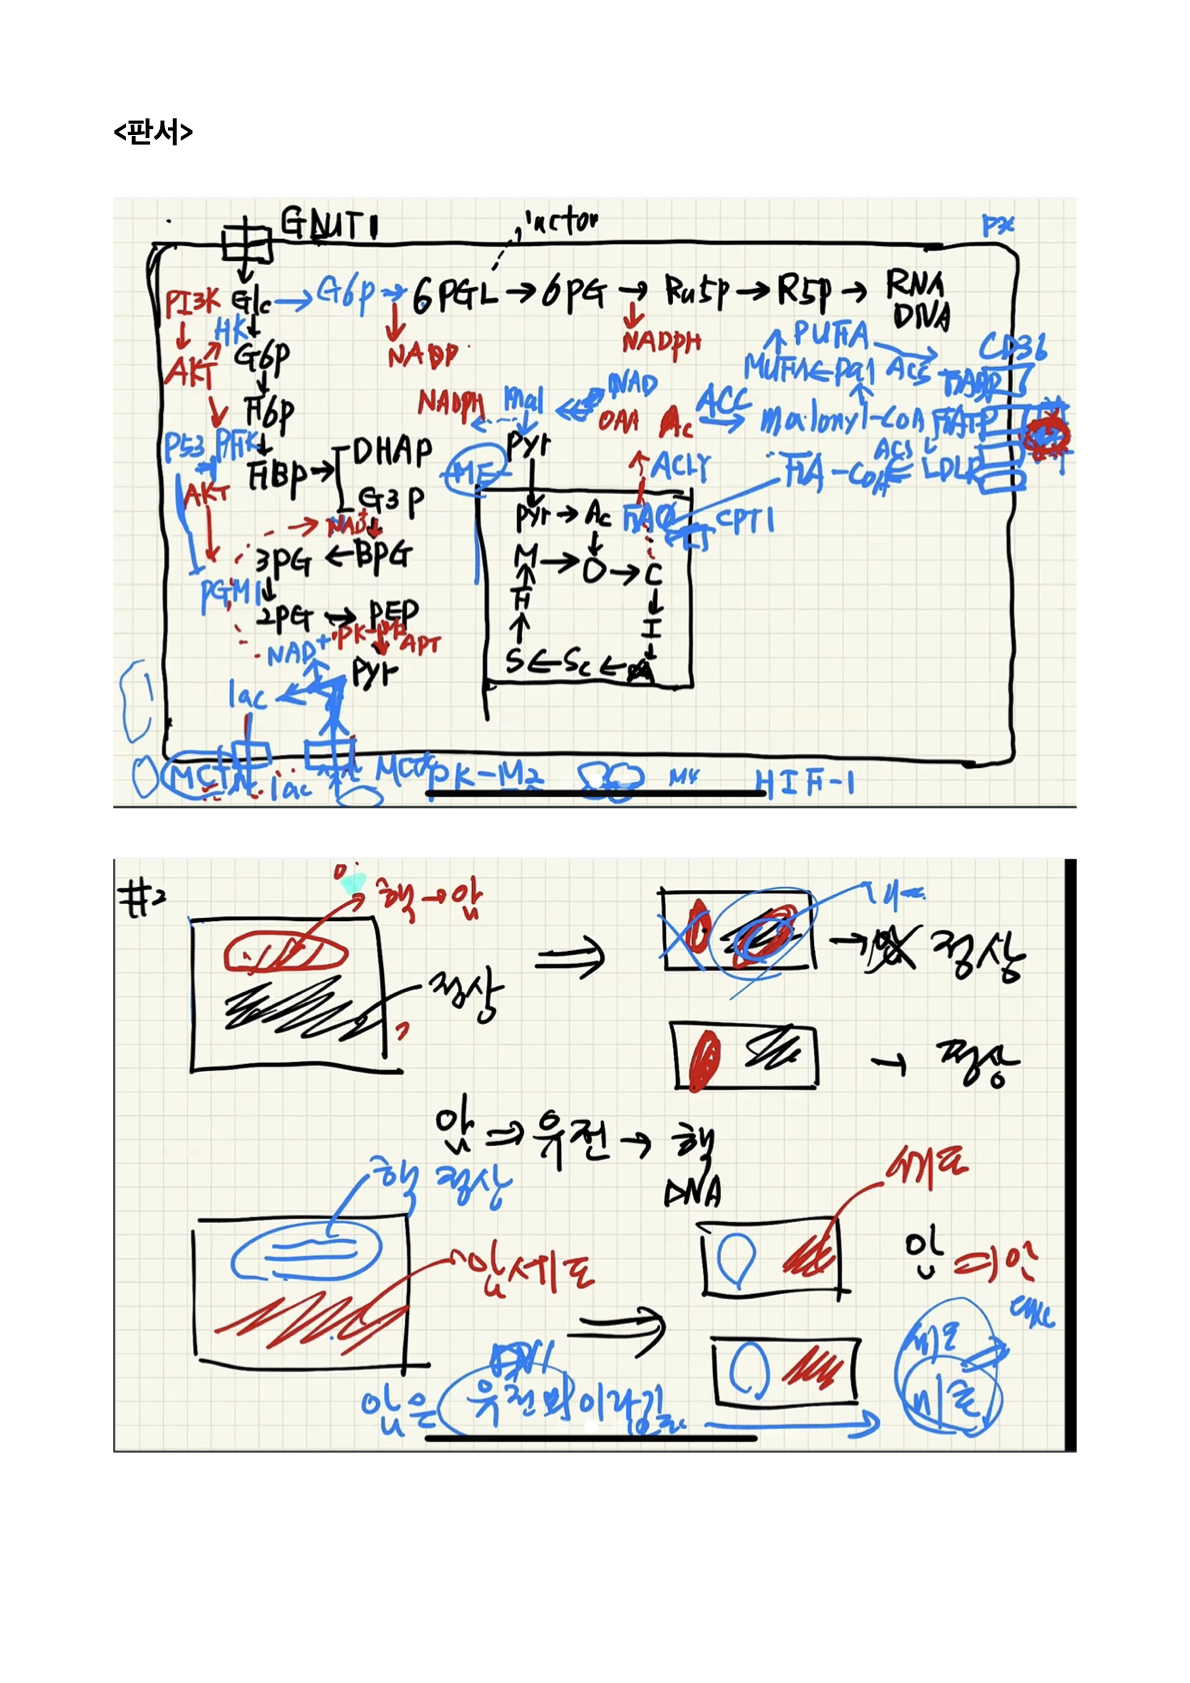 <판서>
GLUT1
px
PI3K Glc → G6P → 6PGL → 6PG → Ru5p → R5p → RNA
DNA
HK
NADPH
AKT G6P
PUFA
CD36
MUFA ← pal ACS FABP
F6p
NADPH mal NAD
OAA Ac ACC malonyl-CoA FATP
P53 PFK
Pyr
ACS
FBP → DHAP
ME
ACLY
FA-CoA LDLR
AKT
G3P
pyr → Ac FAO CPT1
NAD+
3PG ← BPG
M → O → C
PGM1
F
I
2PG → PEP
PK-M2 APT
NAD+
S ← Sc ←
pyr
lac
MCT
lac
PK-M2
HIF-1
#2
핵 → 암
정상
→ 정상
→ 정상
암 ⇒ 유전 → 핵
DNA
핵 정상
세포
암세포
암
암은 유전